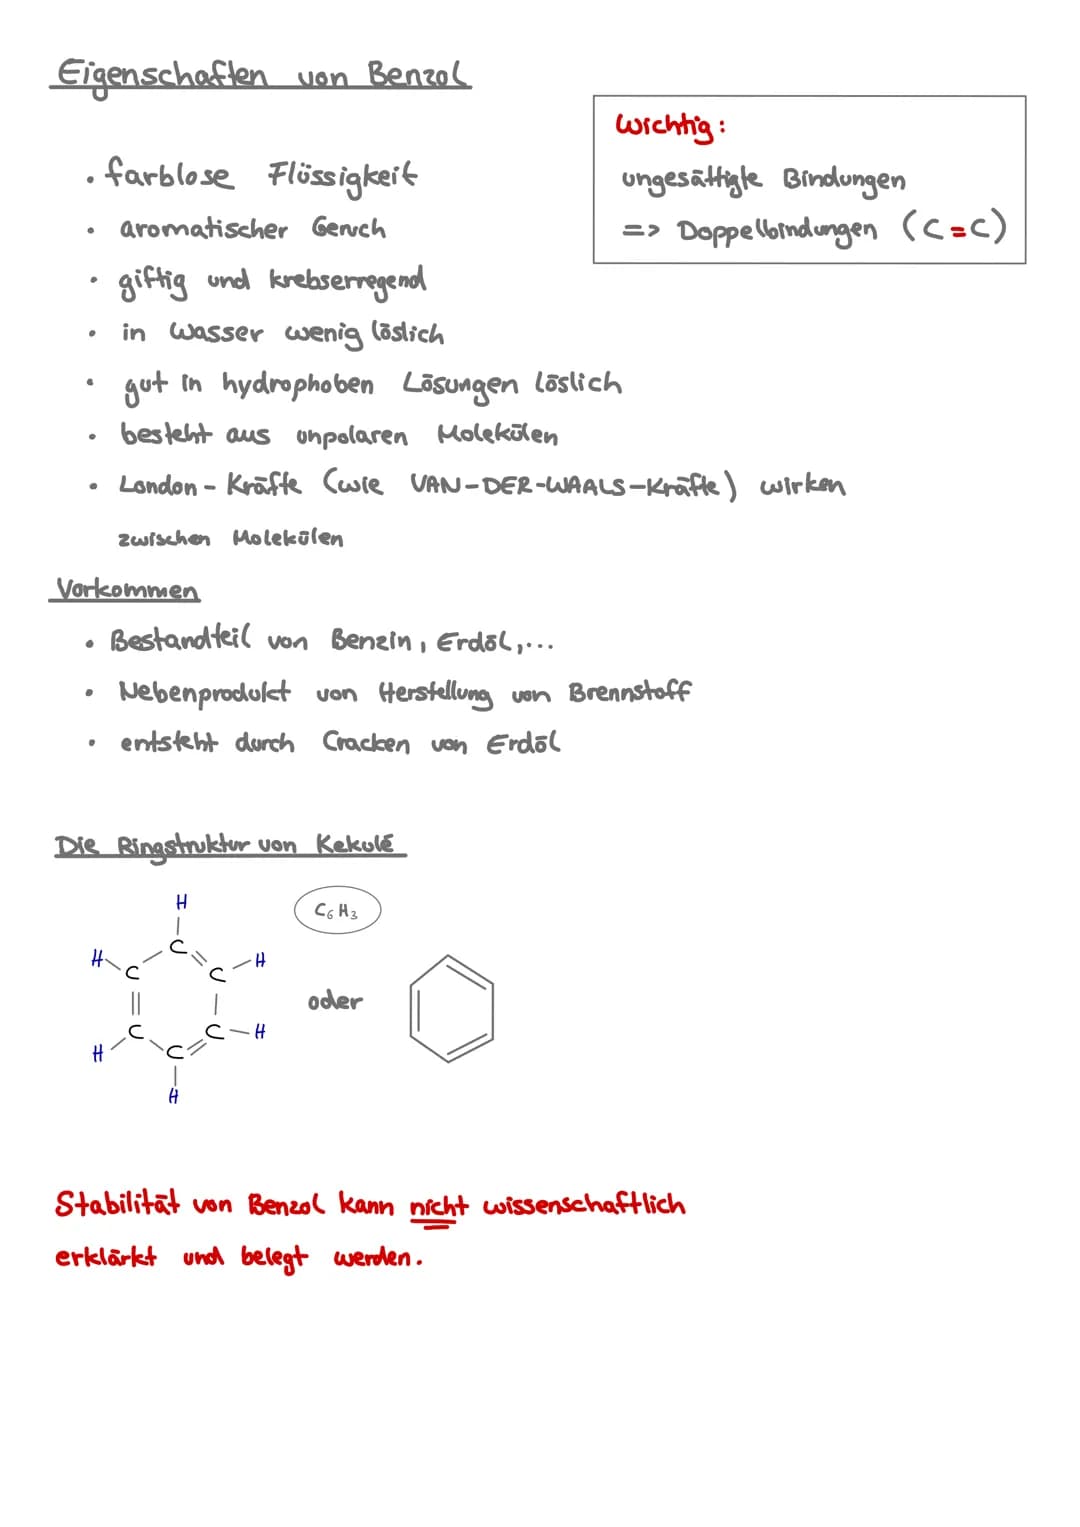 Eigenschaften von Benzol
Wichtig:
ungesättigte Bindungen
=> Doppelbindungen (C=C)
• farblose Flüssigkeit
• aromatischer Geruch
• giftig und krebserregend
• in Wasser wenig löslich
• gut in hydrophoben Lösungen löslich
• besteht aus unpolaren Molekülen
• London-Kräfte (wie VAN-DER-WAALS-Kräfte) wirken
zwischen Molekülen
Vorkommen
• Bestandteil von Benzin, Erdöl,...
• Nebenprodukt von Herstellung von Brennstoff
• entsteht durch Cracken von Erdöl
Die Ringstruktur von Kekulé
H
C6H3
C
H C C H
oder
C C H
H C
H
Stabilität von Benzol kann nicht wissenschaftlich
erklärkt und belegt werden.